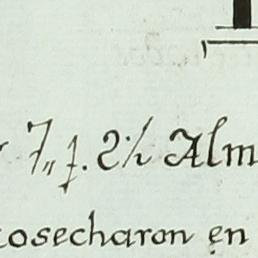 7,, f. 2½ Alm
cosecharon en